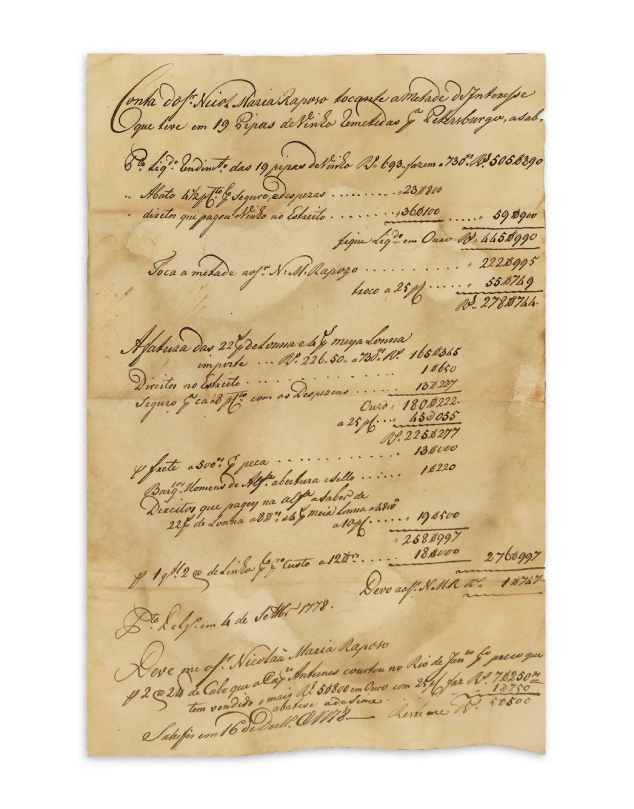 Conta do Sr. Nicol. Maria Raposo tocante a Metade de Interesse
que teve em 19 Pipas de Vinho Remetidas pa. Petersburgo, a sab.
Pto. Liqdo. Rendimto. das 19 pipas de Vinho Rs. 693. fazem a 730rs. Rs. 505$890
Abato 4 1/2 p Cto. Seguro, e despezas .......... 23$800
direitos que pagou o Vinho no Estreito ........ 36$100 ..... 59$900
fique Liqdo. em Ouro Rs. 445$990
Toca a metade ao Sr. N. M. Rapozo .......... 222$995
troco a 25 p ..... 55$749
Rs. 278$744
A fatura das 22 p de Lonna e 4 p meya Lonna
importe ... Rs. 226.50. a 730rs. Rs. 165$345
Direitos no estreito ......... 1$650
Seguro a 8 p Cto. com as Despezas ...... 13$227
Ouro 180$222
a 25 p .... 45$055
Rs. 225$277
p frete a 500rs. p peca .......... 13$000
Homens de Alfa. abertura e sello ........ 1$220
Direitos que paguey na alfa. a saber de
22 p de Lonna a 8 e 4 p meia Lonna a 4800
a 10 p ..... 19$500
258$997
p 1 qtl. 2 @ de Linho Custo a 12 .... 18$000 276$997
Devo ao Sr. N. M. R. Rs. 1$747
Pto. Delga. em 4 de Settbr 1778.
Deve me o Sr. Nicoláu Maria Raposo
p 2 @ 24 de Cabo que o Antunes courtou no Rio de Janro. preço que
tem vendido o mais Rs. 50800 em Ouro com 25 p faz Rs. 7$250
abatese a da sime 1$750
Satisfis em 16 de 1778 Resta me Rs. 5$500